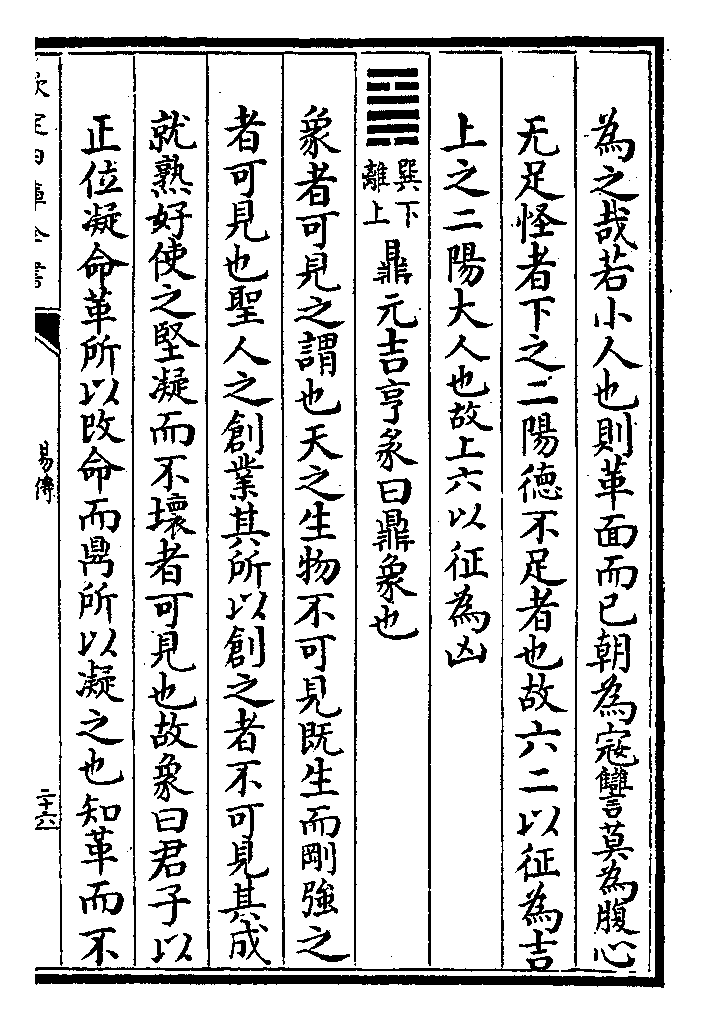 為之哉若小人也則革面而已朝為寇讐莫為腹心
无足怪者下之二陽德不足者也故六二以征為吉
上之二陽大人也故上六以征為凶
巽下
離上
鼎元吉亨彖曰鼎象也
象者可見之謂也天之生物不可見既生而剛強之
者可見也聖人之創業其所以創之者不可見其成
就熟好使之堅凝而不壞者可見也故象曰君子以
正位凝命革所以改命而鼎所以凝之也知革而不
欽定四庫全書
易傳
二十六